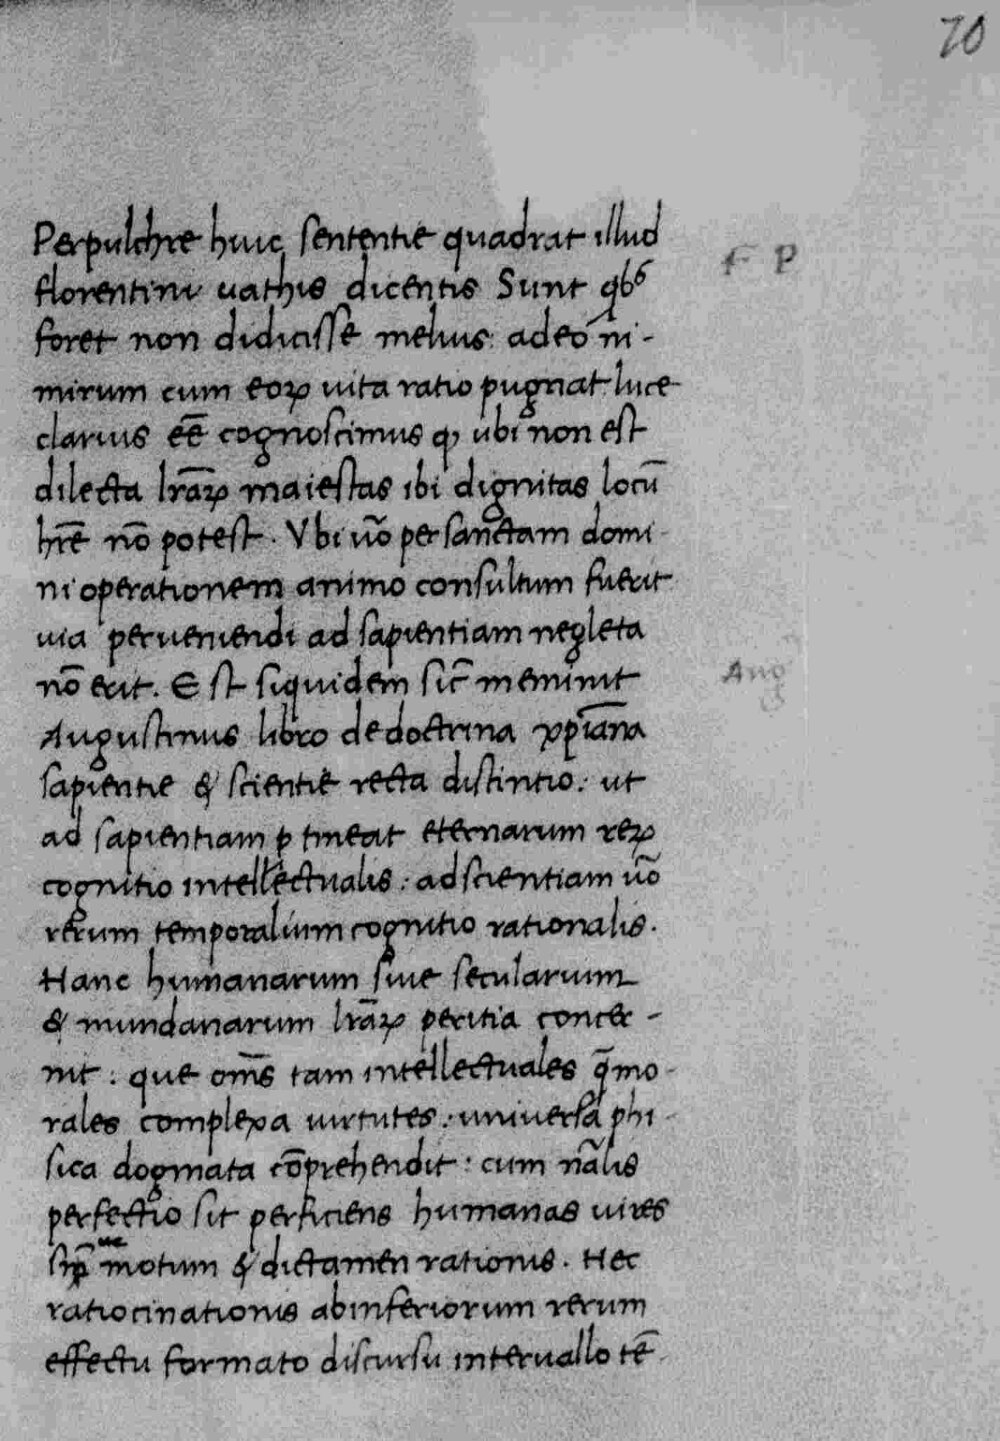 70
Perpulchre huic sententie quadrat illud
F P
florentini uathis dicentis Sunt qb9
foret non didicisse melius: adeo ni-
mirum cum eoꝝ uita ratio pugnat luce
clarius eē cognoscimus ꝙ ubi non est
dilecta lrāꝝ maiestas ibi dignitas locū
hrē nō potest. Vbi ūo per sanctam domi-
ni operationem animo consultum fuerit
uia perueniendi ad sapientiam negleta
nō erit. Est siquidem sic̄ meminit
Aug
Augustinus libro de doctrina xp̄iana
sapientie & scientie recta distintio: ut
ad sapientiam ꝑtineat eternarum reꝝ
cognitio intellectualis: ad scientiam ūo
rerum temporalium cognitio rationalis.
Hanc humanarum siue secularium
& mundanarum lrāꝝ peritia concer-
nit: que om̄s tam intellectuales q̄ mo-
rales complexa uirtutes: uniuersa phi-
sica dogmata cōprehendit: cum nālis
perfectio sit perficiens humanas uires
motum & dictamen rationis. Hec
ratiocinationis ab inferiorum rerum
effectu formato discursu interuallo tē-